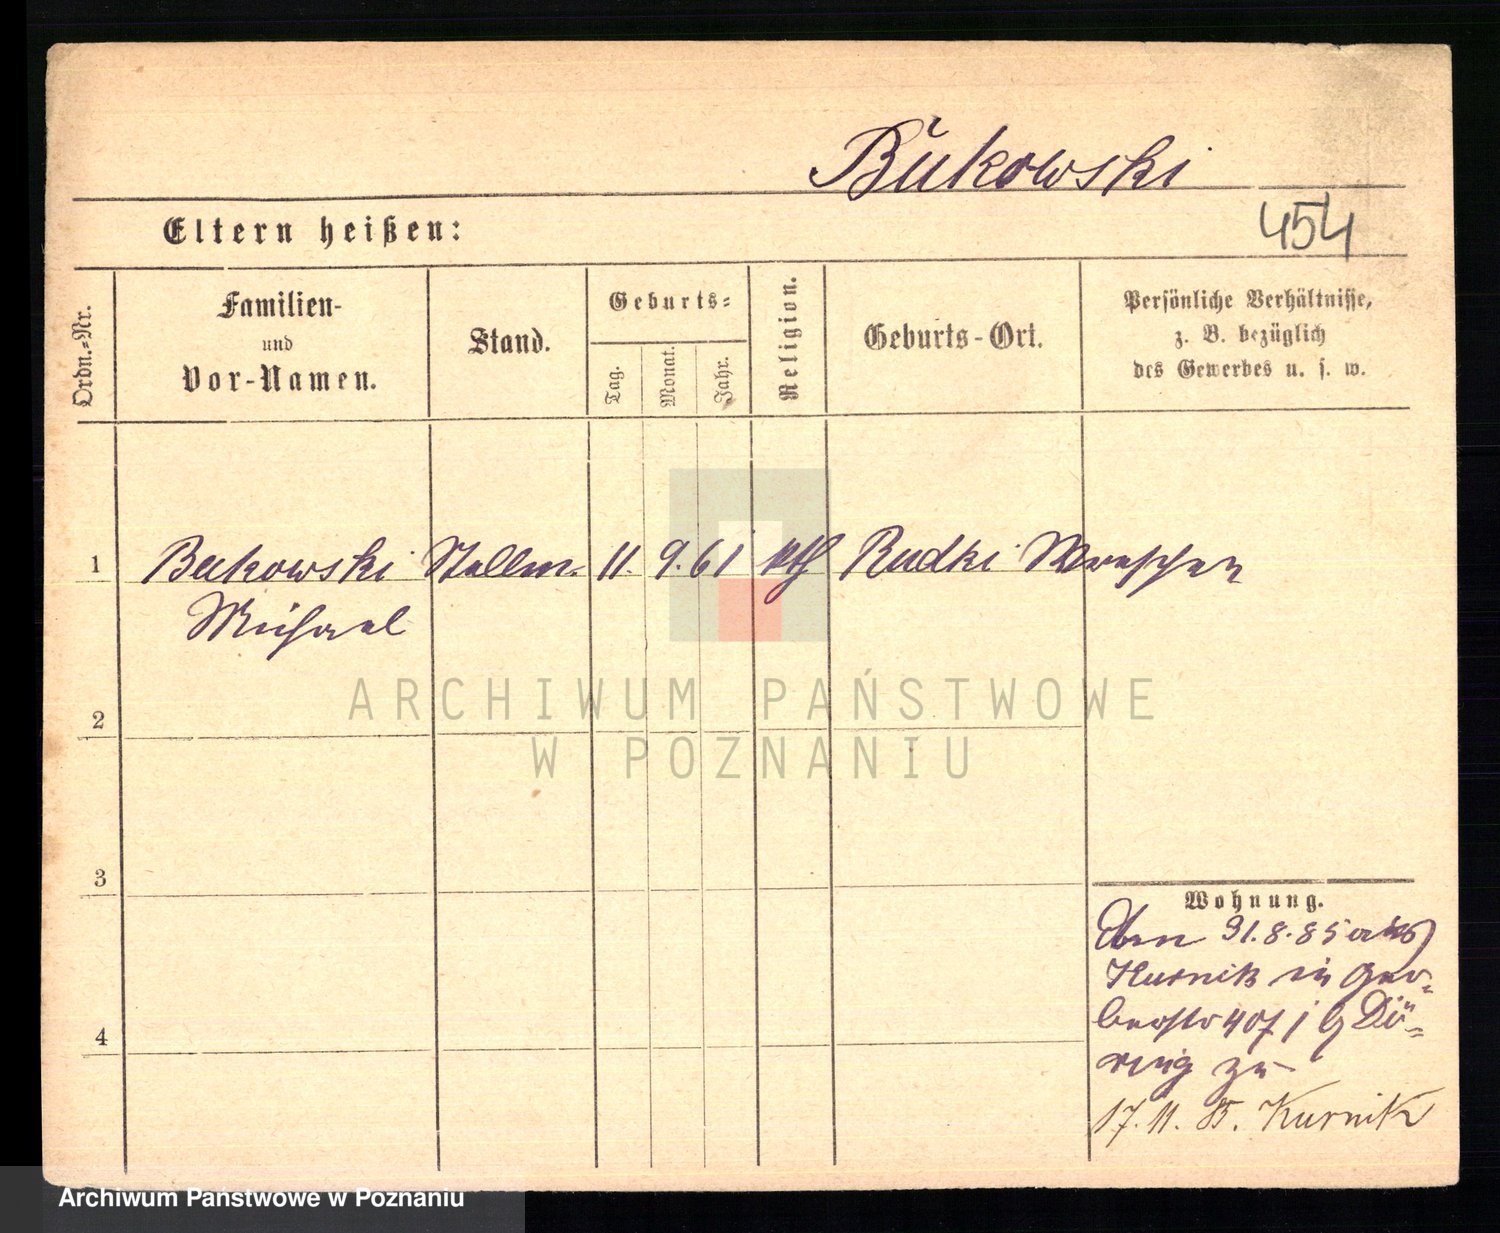 Bukowski
454
Eltern heißen:
Ordn.-Nr.
Familien-
und
Vor-Namen.
Stand.
Geburts-
Tag.
Monat.
Jahr.
Religion.
Geburts-Ort.
Persönliche Verhältnisse,
z. B. bezüglich
des Gewerbes u. s. w.
1 Bukowski Stellm. 11. 9. 61 kth Rudki Wreschen
Michael
ARCHIWUM PAŃSTWOWE
W POZNANIU
2
3
4
Wohnung.
31.8.85 aus
Kurnik in Ger-
berstr 40 Dö-
ring zu
17. 11. 85. Kurnik
Archiwum Państwowe w Poznaniu